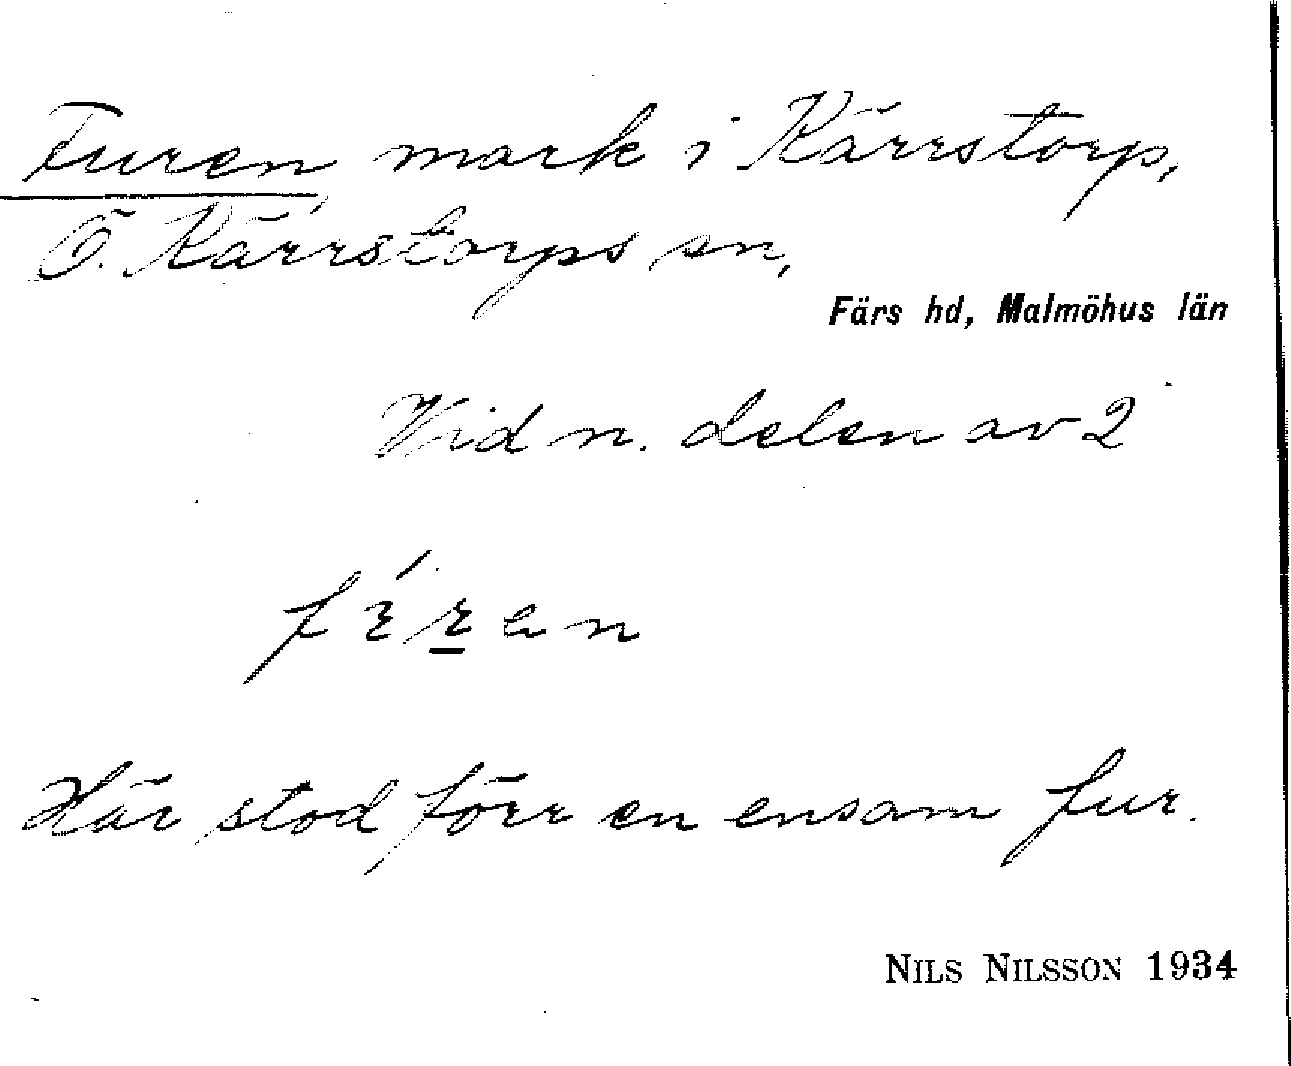 Furen, mark i Kärrstorp,
Ö. Kärrstorps sn,
Färs hd, Malmöhus län
Vid n. delen av 2
Här stod förr en ensam fur.
NILS NILSSON 1934